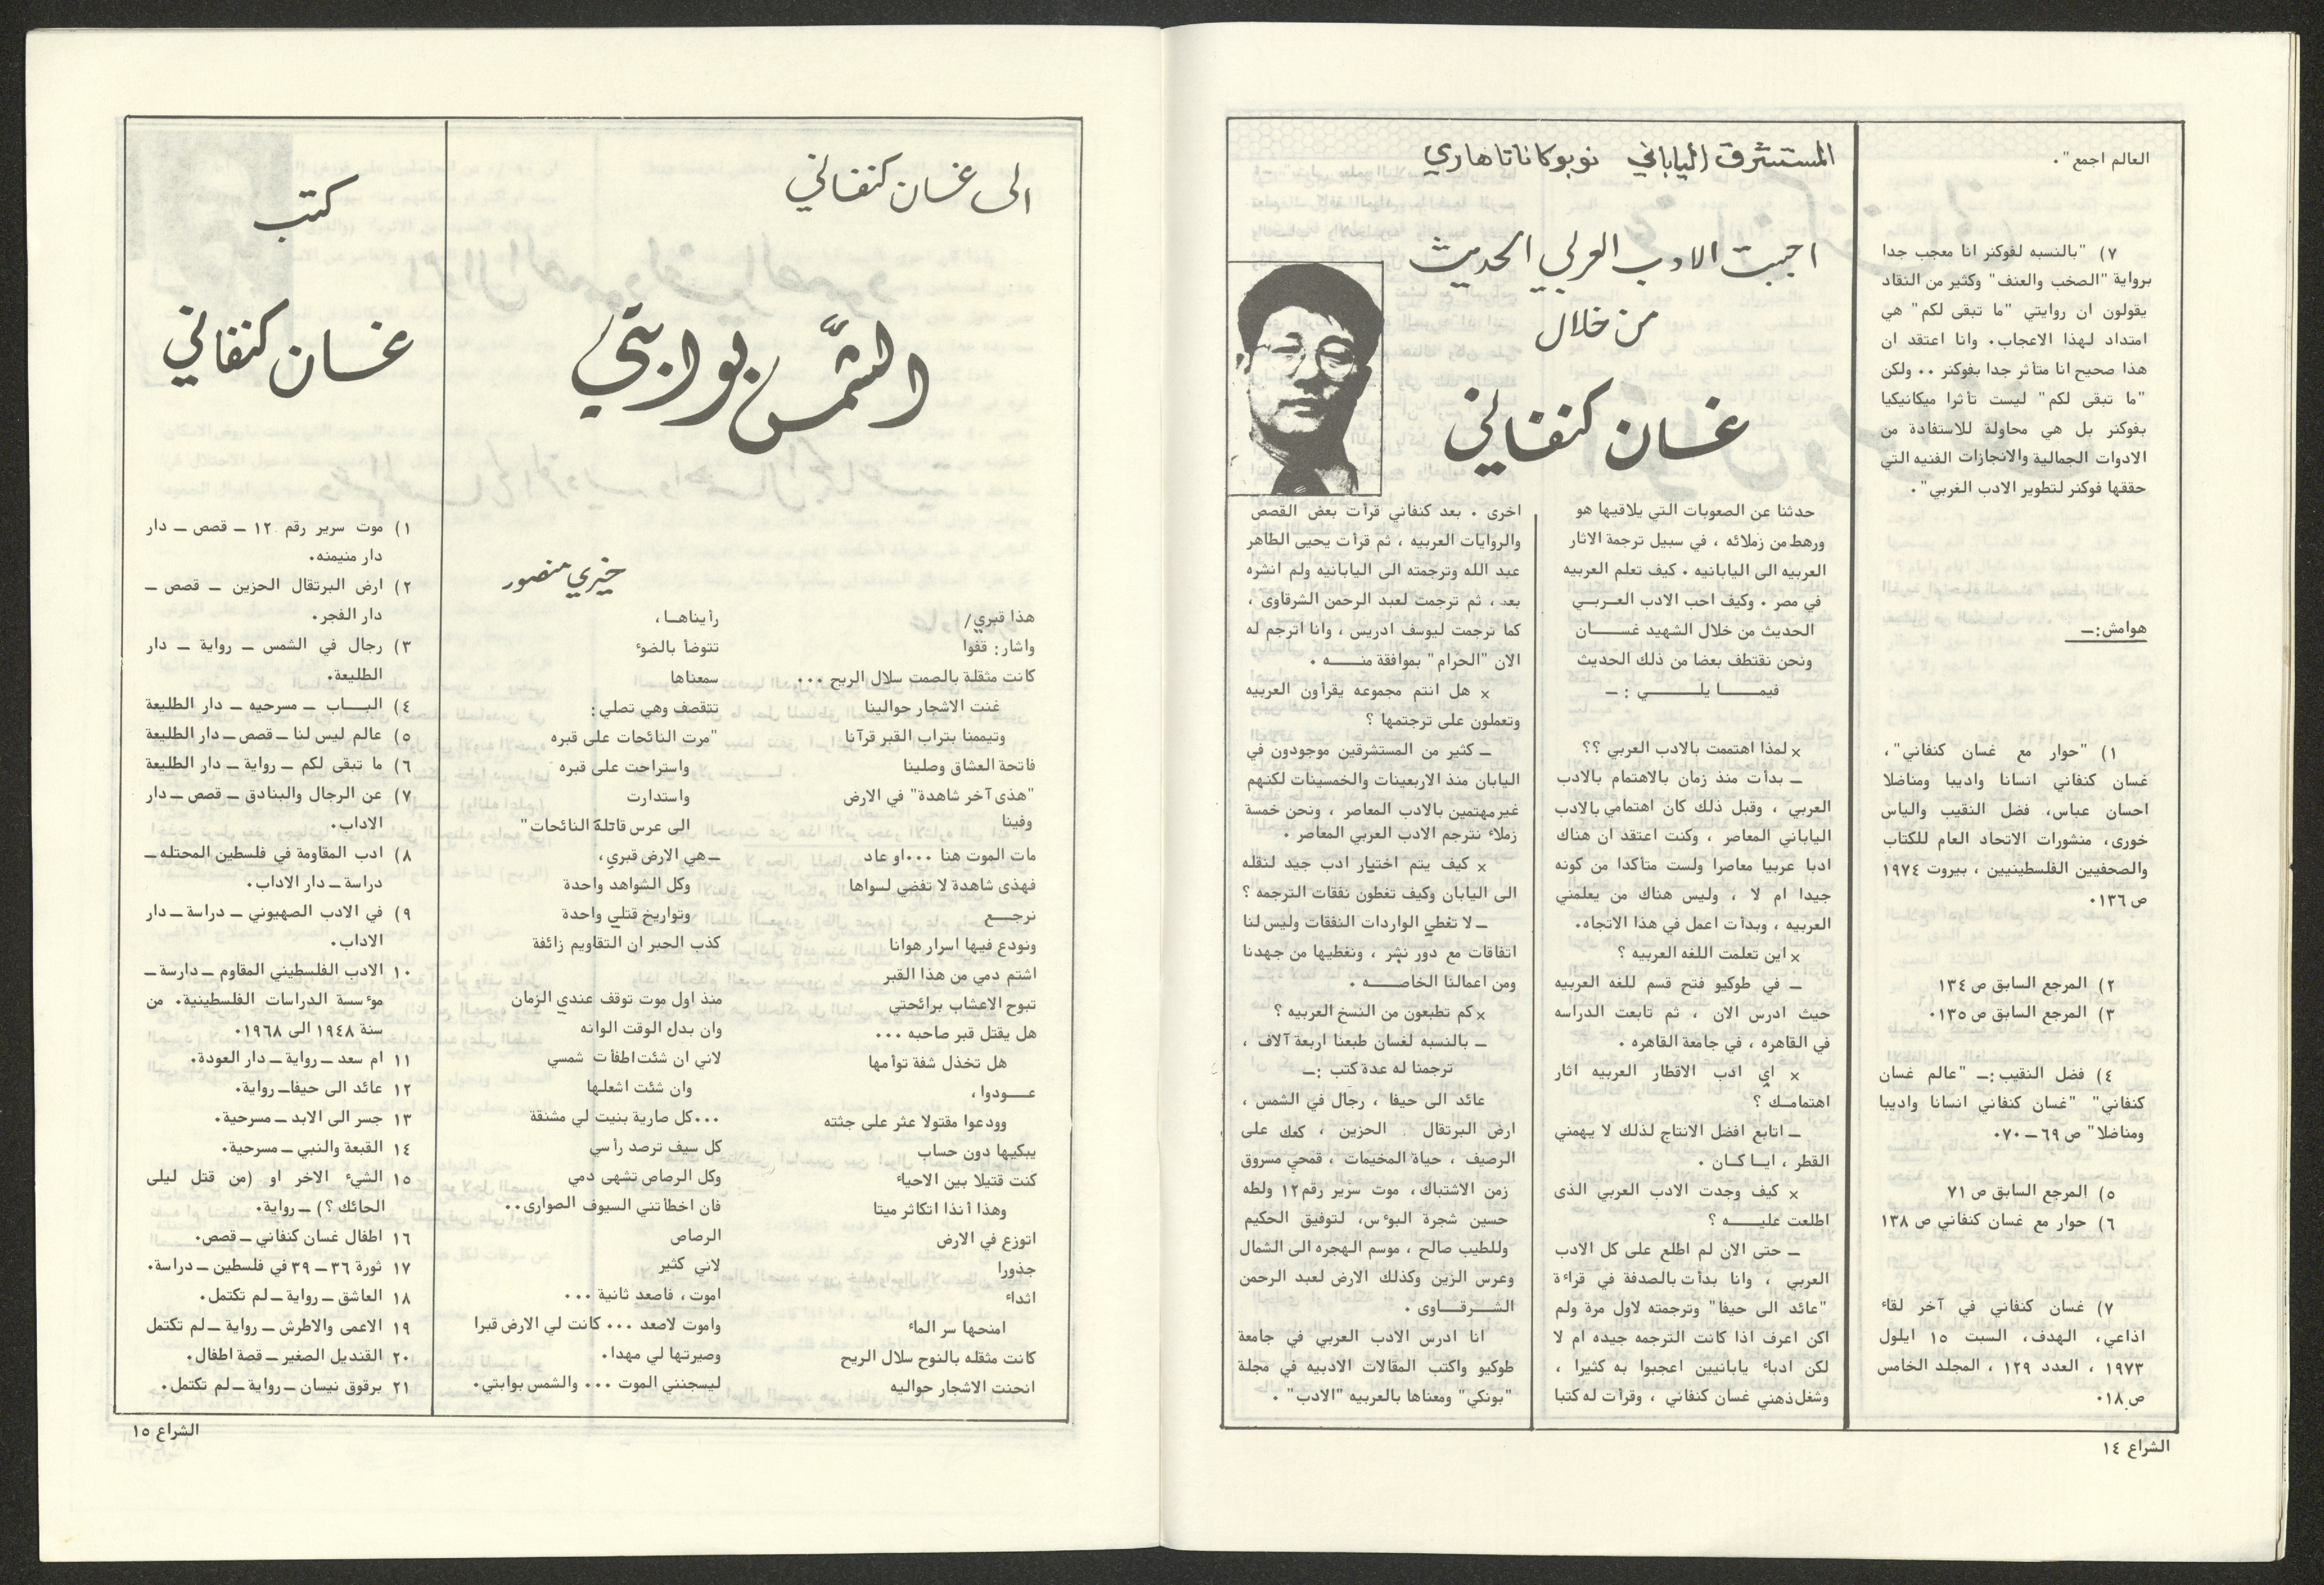 العالم اجمع".
٧) "بالنسبه لفوكنر انا معجب جدا
برواية "الصخب والعنف" وكثير من النقاد
يقولون ان روايتي "ما تبقى لكم" هي
امتداد لهذا الاعجاب. وانا اعتقد ان
هذا صحيح انا متأثر جدا بفوكنر .. ولكن
"ما تبقى لكم" ليست تأثرا ميكانيكيا
بفوكنر بل هي محاولة للاستفادة من
الادوات الجمالية والانجازات الفنيه التي
حققها فوكنر لتطوير الادب الغربي".
هوامش:ـ
١) "حوار مع غسان كنفاني"،
غسان كنفاني انسانا واديبا ومناضلا
احسان عباس، فضل النقيب والياس
خورى، منشورات الاتحاد العام للكتاب
والصحفيين الفلسطينيين ، بيروت ١٩٧٤
ص ١٣٦.
٢) المرجع السابق ص ١٣٤
٣) المرجع السابق ص ١٣٥.
٤) فضل النقيب :ـ "عالم غسان
كنفاني" "غسان كنفاني انسانا واديبا
ومناضلا" ص ٦٩ ـ ٧٠.
٥) المرجع السابق ص ٧١
٦) حوار مع غسان كنفاني ص ١٣٨
٧) غسان كنفاني في آخر لقاء
اذاعي، الهدف، السبت ١٥ ايلول
١٩٧٣ ، العدد ١٢٩ ، المجلد الخامس
ص ١٨.
المستشرق الياباني نوبوكاناتاهاري
احببت الادب العربي الحديث
من خلال
غسان كنفاني
حدثنا عن الصعوبات التي يلاقيها هو
ورهط من زملائه ، في سبيل ترجمة الاثار
العربيه الى اليابانيه . كيف تعلم العربيه
في مصر . وكيف احب الادب العربي
الحديث من خلال الشهيد غسان
ونحن نقتطف بعضا من ذلك الحديث
فيما يلي :ـ
× لمذا اهتممت بالادب العربي ؟؟
ـ بدأت منذ زمان بالاهتمام بالادب
العربي ، وقبل ذلك كان اهتمامي بالادب
الياباني المعاصر ، وكنت اعتقد ان هناك
ادبا عربيا معاصرا ولست متأكدا من كونه
جيدا ام لا ، وليس هناك من يعلمني
العربيه ، وبدأت اعمل في هذا الاتجاه.
× اين تعلمت اللغه العربيه ؟
ـ في طوكيو فتح قسم للغه العربيه
حيث ادرس الان ، ثم تابعت الدراسه
في القاهره ، في جامعة القاهره .
× اي ادب الاقطار العربيه اثار
اهتمامك ؟
ـ اتابع افضل الانتاج لذلك لا يهمني
القطر ، ايا كان .
× كيف وجدت الادب العربي الذى
اطلعت عليه ؟
ـ حتى الان لم اطلع على كل الادب
العربي ، وانا بدأت بالصدفة في قراءة
"عائد الى حيفا" وترجمته لاول مرة ولم
اكن اعرف اذا كانت الترجمه جيده ام لا
لكن ادباء يابانيين اعجبوا به كثيرا ،
وشغل ذهني غسان كنفاني ، وقرأت له كتبا
اخرى . بعد كنفاني قرأت بعض القصص
والروايات العربيه ، ثم قرأت يحيى الطاهر
عبد الله وترجمته الى اليابانيه ولم انشره
بعد ، ثم ترجمت لعبد الرحمن الشرقاوى ،
كما ترجمت ليوسف ادريس ، وانا اترجم له
الان "الحرام" بموافقة منه .
× هل انتم مجموعه يقرأون العربيه
وتعملون على ترجتمها ؟
ـ كثير من المستشرقين موجودون في
اليابان منذ الاربعينات والخمسينات لكنهم
غير مهتمين بالادب المعاصر ، ونحن خمسة
زملاء نترجم الادب العربي المعاصر .
× كيف يتم اختيار ادب جيد لنقله
الى اليابان وكيف تغطون نفقات الترجمه ؟
ـ لا تغطي الواردات النفقات وليس لنا
اتفاقات مع دور نشر ، ونغطيها من جهدنا
ومن اعمالنا الخاصه .
× كم تطبعون من النسخ العربيه ؟
ـ بالنسبه لغسان طبعنا اربعة آلاف ،
ترجمنا له عدة كتب :ـ
عائد الى حيفا ، رجال في الشمس ،
ارض البرتقال الحزين ، كعك على
الرصيف ، حياة المخيمات ، قمحي مسروق
زمن الاشتباك، موت سرير رقم ١٢ ولطه
حسين شجرة البؤس، لتوفيق الحكيم
وللطيب صالح ، موسم الهجره الى الشمال
وعرس الزين وكذلك الارض لعبد الرحمن
الشرقاوى .
انا ادرس الادب العربي في جامعة
طوكيو واكتب المقالات الادبيه في مجلة
"بونكي" ومعناها بالعربيه "الادب" .
الشراع ١٤
الى غسان كنفاني
الشمس بوابتي
خيري منصور
هذا قبري/
واشار: قفوا
كانت مثقلة بالصمت سلال الريح ...
غنت الاشجار حوالينا
وتيممنا بتراب القبر قرآنا
فاتحة العشاق وصلينا
"هذى آخر شاهدة" في الارض
وفينا
مات الموت هنا ...او عاد
فهذى شاهدة لا تفضي لسواها
نرجع
ونودع فيها اسرار هوانا
اشتم دمي من هذا القبر
تبوح الاعشاب برائحتي
هل يقتل قبر صاحبه ...
هل تخذل شفة توأمها
عودوا ،
وودعوا مقتولا عثر على جثته
يبكيها دون حساب
كنت قتيلا بين الاحياء
وهذا أنذا اتكاثر ميتا
اتوزع في الارض
جذورا
اثداء
امنحها سر الماء
كانت مثقله بالنوح سلال الريح
انحنت الاشجار حواليه
رأيناها ،
تتوضأ بالضوء
سمعناها
تتقصف وهي تصلي:
"مرت النائحات على قبره
واستراحت على قبره
واستدارت
الى عرس قاتلة النائحات"
ـ هي الارض قبري،
وكل الشواهد واحدة
وتواريخ قتلي واحدة
كذب الحبر ان التقاويم زائفة
منذ اول موت توقف عندي الزمان
وان بدل الوقت الوانه
لاني ان شئت اطفأت شمسي
وان شئت اشعلها
...كل صارية بنيت لي مشنقة
كل سيف ترصد رأسي
وكل الرصاص تشهى دمي
فان اخطأتني السيوف الصوارى..
الرصاص
لاني كثير
اموت ، فاصعد ثانية ...
واموت لاصعد ... كانت لي الارض قبرا
وصيرتها لي مهدا.
ليسجنني الموت ... والشمس بوابتي.
كتب
غسان كنفاني
١) موت سرير رقم ١٢ ـ قصص ـ دار
دار منيمنه.
٢) ارض البرتقال الحزين ـ قصص ـ
دار الفجر.
٣) رجال في الشمس ـ رواية ـ دار
الطليعة.
٤) الباب ـ مسرحيه ـ دار الطليعة
٥) عالم ليس لنا ـ قصص ـ دار الطليعة
٦) ما تبقى لكم ـ رواية ـ دار الطليعة
٧) عن الرجال والبنادق ـ قصص ـ دار
الاداب.
٨) ادب المقاومة في فلسطين المحتله ـ
دراسة ـ دار الاداب.
٩) في الادب الصهيوني ـ دراسة ـ دار
الاداب.
١٠ الادب الفلسطيني المقاوم ـ دارسة ـ
موءسسة الدراسات الفلسطينية. من
سنة ١٩٤٨ الى ١٩٦٨.
١١ ام سعد ـ رواية ـ دار العودة.
١٢ عائد الى حيفا ـ رواية.
١٣ جسر الى الابد ـ مسرحية.
١٤ القبعة والنبي ـ مسرحية.
١٥ الشيء الاخر او (من قتل ليلى
الحائك ؟) ـ رواية.
١٦ اطفال غسان كنفاني ـ قصص.
١٧ ثورة ٣٦ ـ ٣٩ في فلسطين ـ دراسة.
١٨ العاشق ـ رواية ـ لم تكتمل.
١٩ الاعمى والاطرش ـ رواية ـ لم تكتمل
٢٠ القنديل الصغير ـ قصة اطفال.
٢١ برقوق نيسان ـ رواية ـ لم تكتمل.
الشراع ١٥